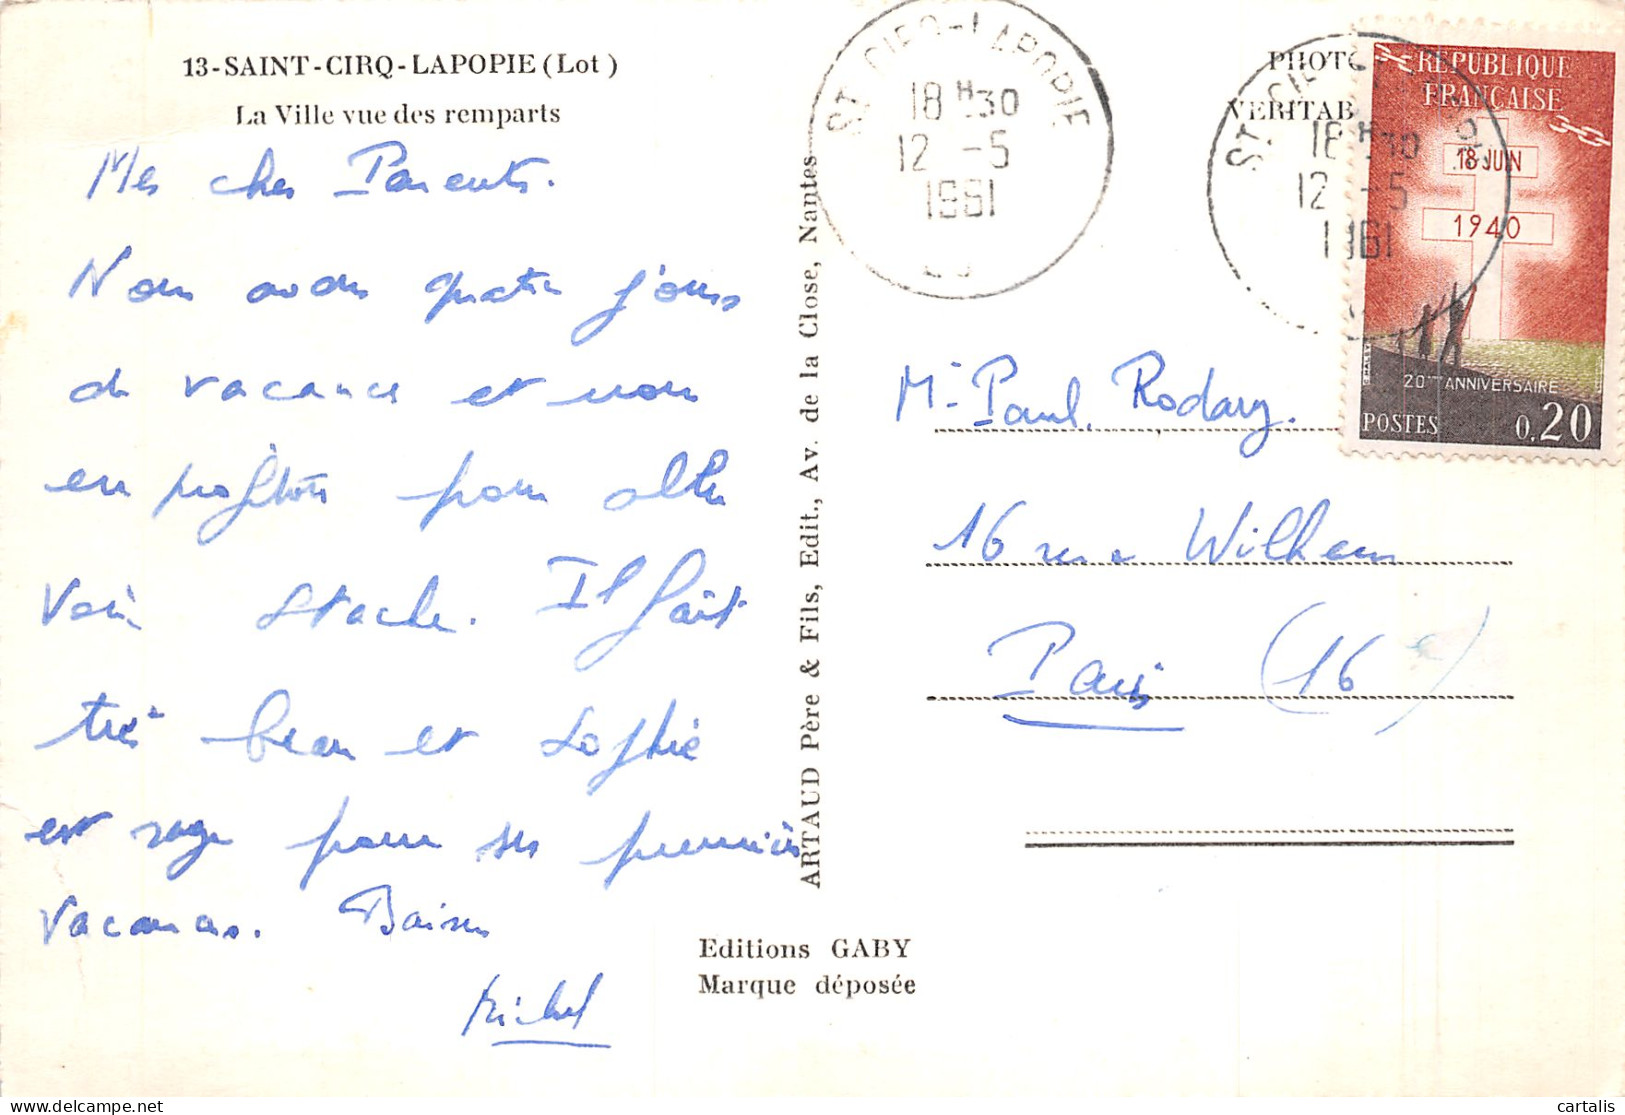 13-SAINT-CIRQ-LAPOPIE (Lot)
La Ville vue des remparts
Mes chers Parents.
Nous avons quatre jours
de vacance et nous
en profitons pour aller
voir Stache. Il fait
très beau et Sophie
est sage pour ses premières
vacances. Baisers
Michel
ARTAUD Père & Fils, Edit., Av. de la Close, Nantes
Editions GABY
Marque déposée
ST CIRQ-LAPOPIE
18 H 30
12 -5
1961
PHOTO
VERITAB
ST CIRQ
18 H 30
12 -5
1961
REPUBLIQUE
FRANÇAISE
18 JUIN
1940
20ème ANNIVERSAIRE
POSTES 0,20
Mr Paul Rodary.
16 rue Wilhem
Paris (16e)
cartalis